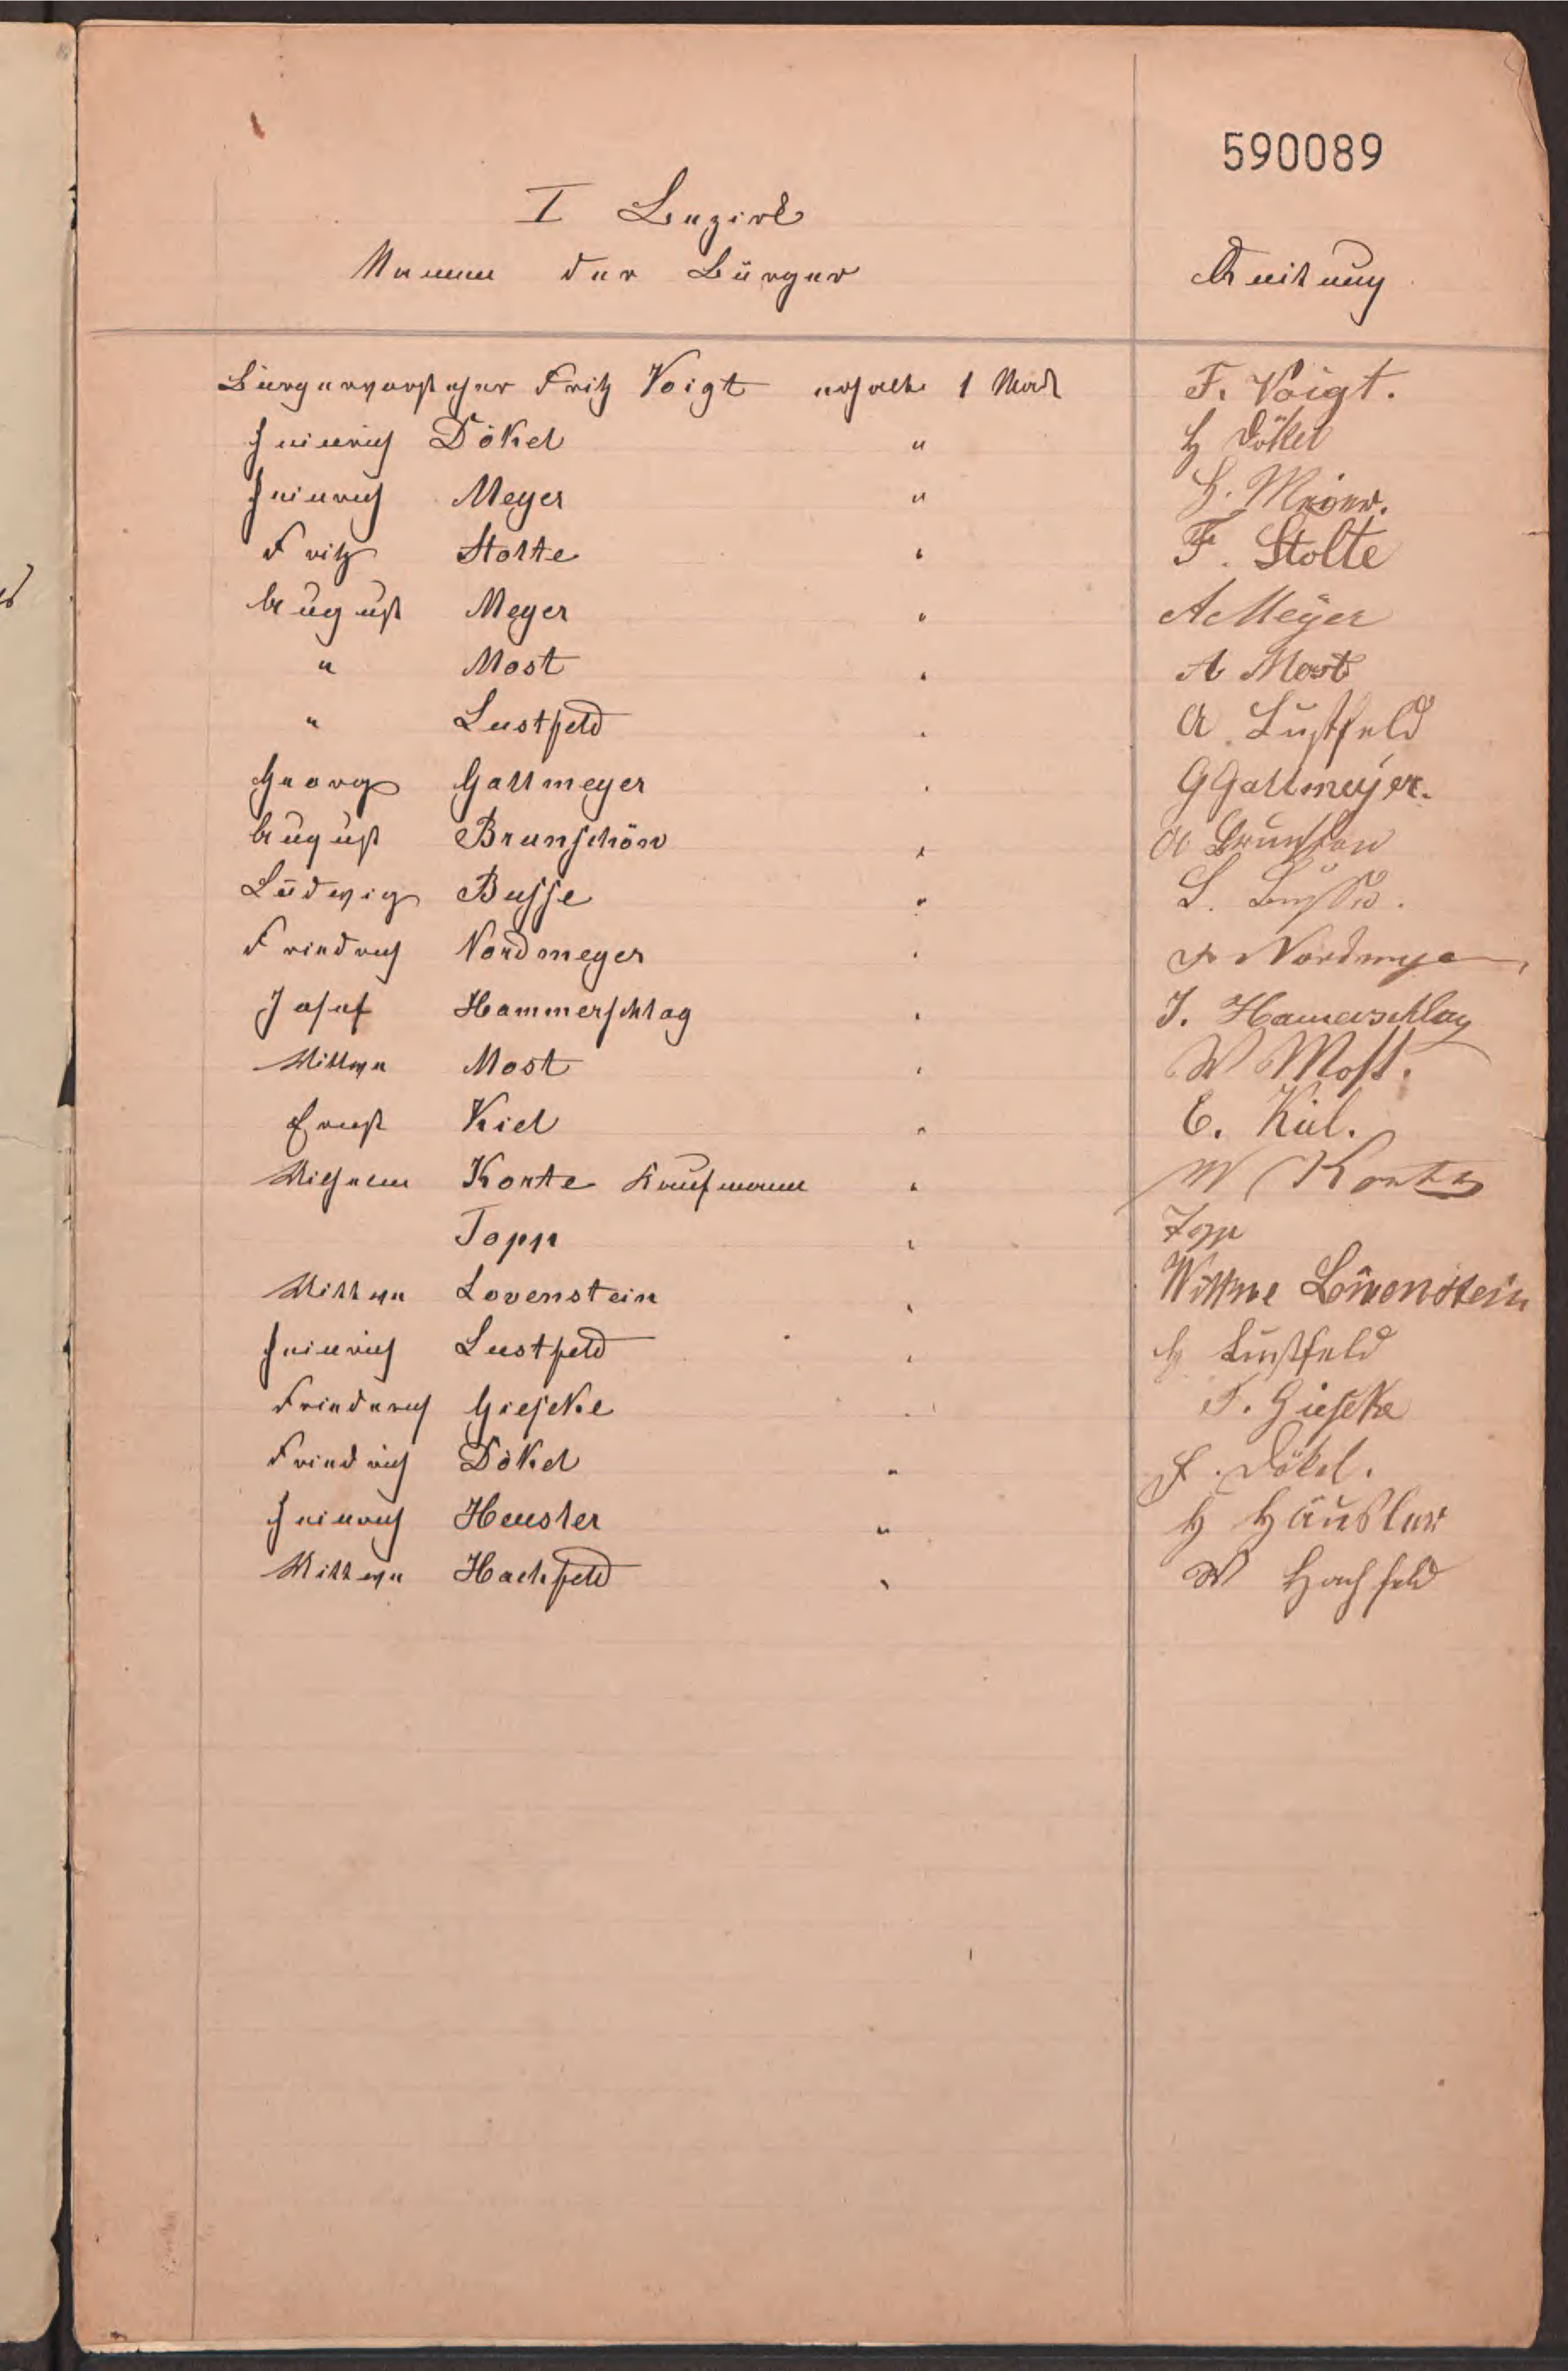 590089
I Bezirk
Namen der Bürger Quittung
Bürgervorsteher Fritz Voigt erhalte 1 Mark F. Voigt.
Heinrich Dökel " H Dökel
Heinrich Meyer " H. Meier.
Fritz Stolte " F. Stolte
August Meyer " A Meÿer
" Most " A Most
" Lustfeld " A. Lustfeld
Georg Gallmeyer " G Gallmeyer.
August Brunschön " A
Ludwig Busse " L. Busse.
Friedrich Nordmeyer " Fr Nordmeye
Josef Hammerschlag " J. Hamerschlag
Wittwe Most " W Most.
Ernst Kiel " E. Kiel.
Wilhelm Korte Kaufmann " W Korte
Topp " Topp
Wittwe Lovenstein " Wittwe Löwenstein
Heinrich Lustfeld " H Lustfeld
Friederich Gieseke " F. Gieseke
Friedrich Dökel " F. Dökel.
Heinrich Heusler " H Häusler
Wittwe Hachfeld " W Hachfeld